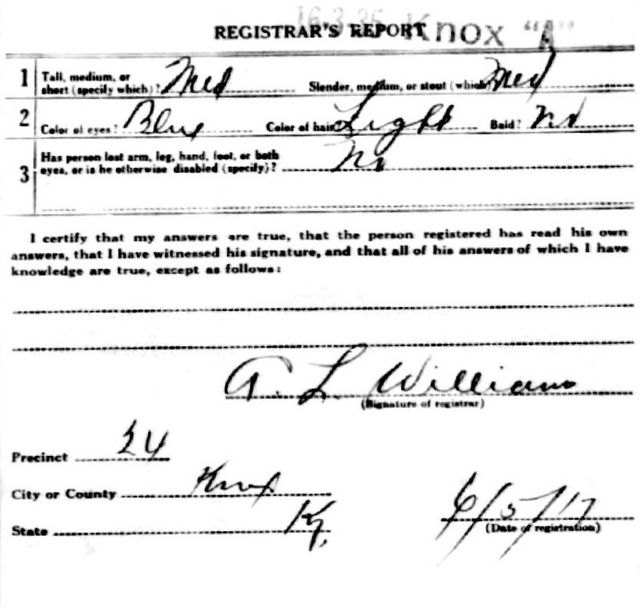 16-3-35 Knox "A"
REGISTRAR'S REPORT
1 Tall, medium, or short (specify which)? Med Slender, medium, or stout (which)? Med
2 Color of eyes? Blue Color of hair? Light Bald? No
3 Has person lost arm, leg, hand, foot, or both
eyes, or is he otherwise disabled (specify)? No
I certify that my answers are true, that the person registered has read his own
answers, that I have witnessed his signature, and that all of his answers of which I have
knowledge are true, except as follows:
A. L. Williams
(Signature of registrar)
Precinct 24
City or County Knox
State Ky.
6/5/17
(Date of registration)